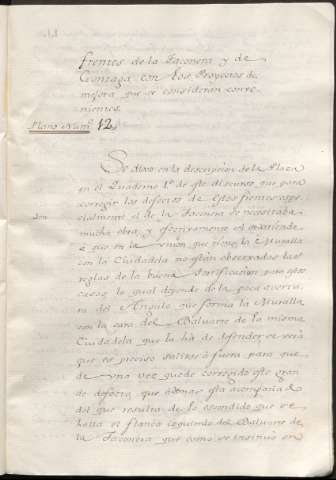 frentes de la Taconera y de
Gonzaga con los Proyectos de
mejora que se consideran conve-
nientes.
Plano Num.º 12,
Se dixo en la descripcion de la Plaza
en el Quaderno 1.º de este discurso que para
corregir los defectos de estos frentes espe-
cialmente el de la Taconera se necesitaba
mucha obra, y efectivamente si se atiende
à que en la union que tiene la Muralla
con la Ciudadela no están observadas las
reglas de la buena fortificacion para estos
casos lo qual depende de la poca avertu-
ra del Angulo que forma la Muralla
con la cara del Baluarte de la misma
Ciudadela que la há de defender se verá
que es preciso salirse à fuera para que
de una vez quede corregido este gran-
de defecto, que ademas está acompañado
del que resulta de lo escondido que se
halla el flanco izquierdo del Baluarte de
la Taconera que como se insinuó en